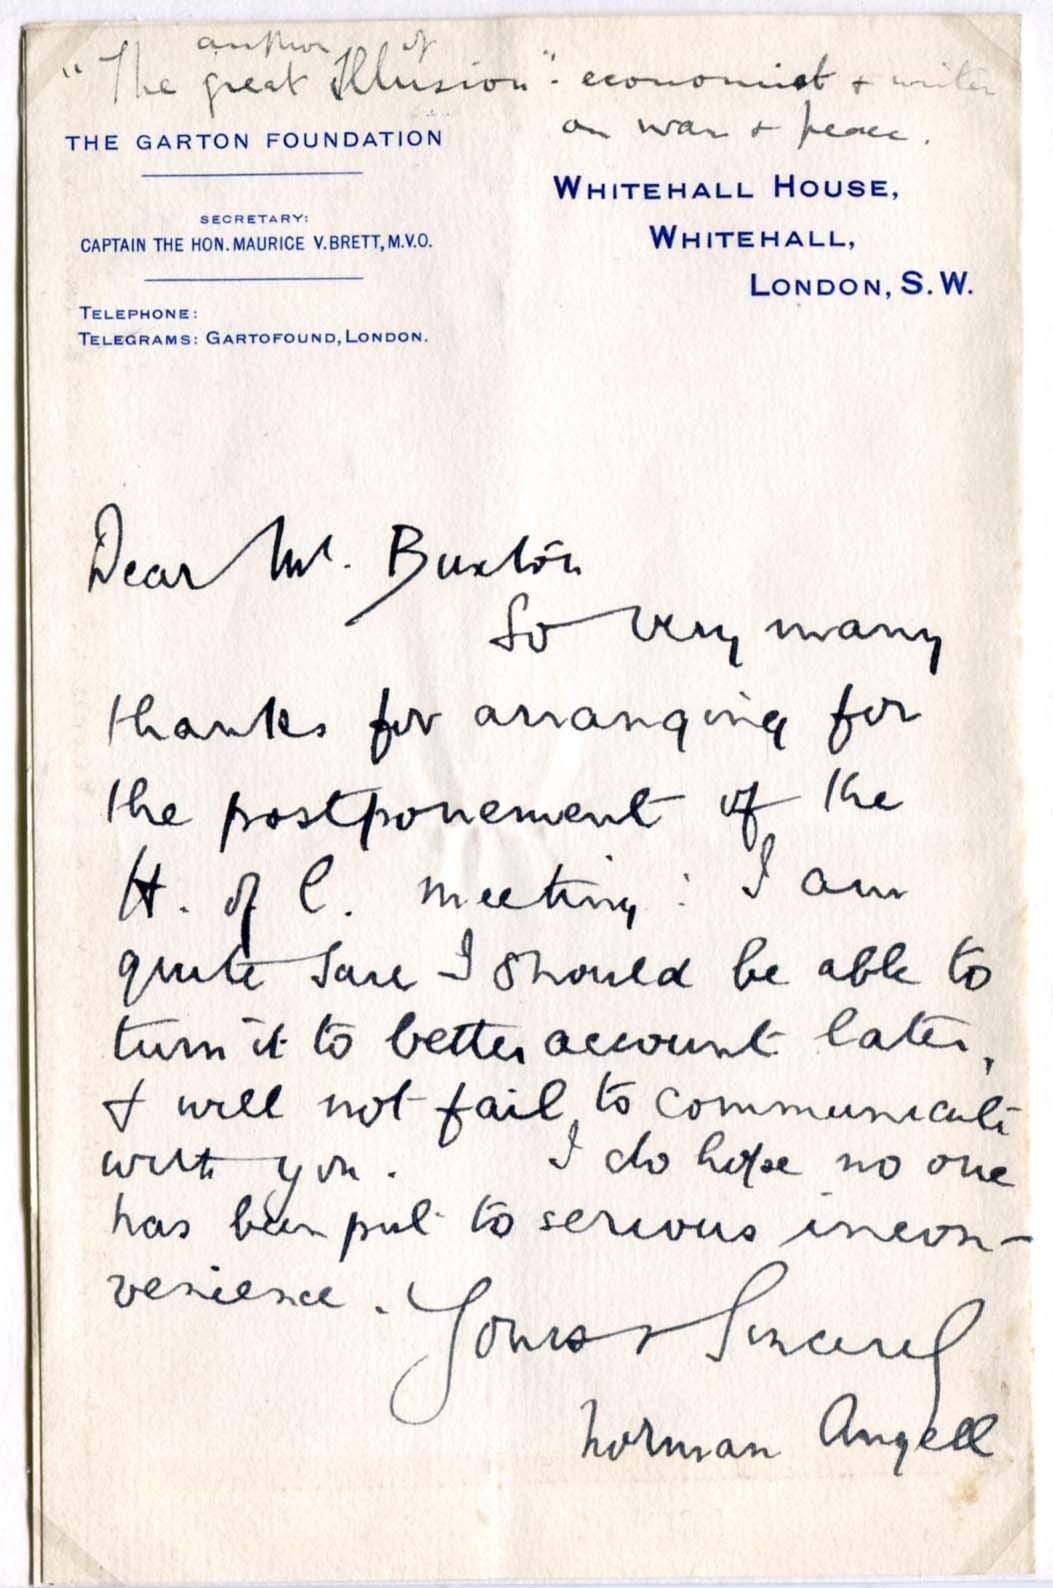 author of
"The great Illusion" - economist & writer
on war & peace.
THE GARTON FOUNDATION
SECRETARY:
CAPTAIN THE HON. MAURICE V. BRETT, M.V.O.
TELEPHONE:
TELEGRAMS: GARTOFOUND, LONDON.
WHITEHALL HOUSE,
WHITEHALL,
LONDON, S.W.
Dear Mr. Buxton
So very many
thanks for arranging for
the postponement of the
H. of C. meeting: I am
quite sure I should be able to
turn it to better account later,
& will not fail to communicate
with you. I do hope no one
has been put to serious incon-
venience.
Yours Sincerely
Norman Angell